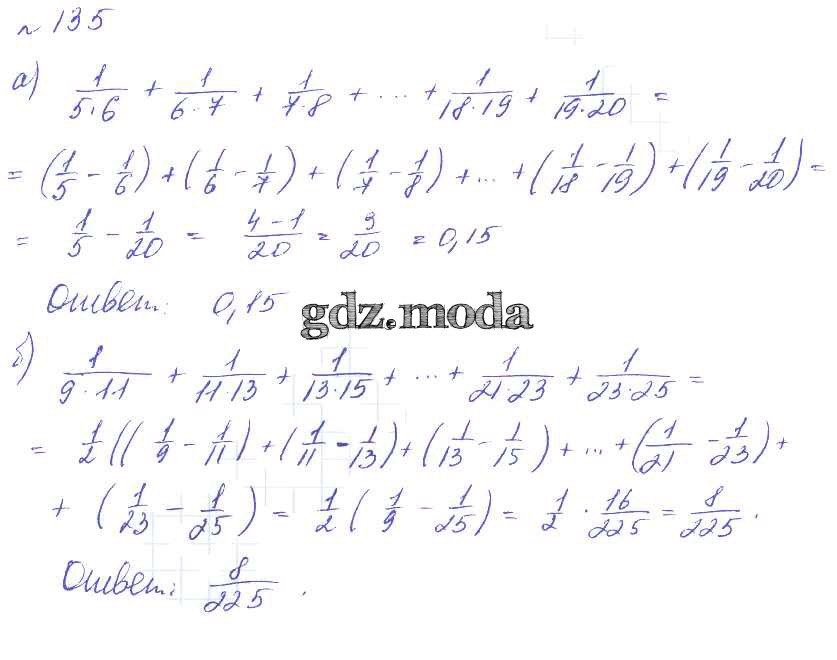 № 135
а) 1/(5·6) + 1/(6·7) + 1/(7·8) + ... + 1/(18·19) + 1/(19·20) =
= (1/5 - 1/6) + (1/6 - 1/7) + (1/7 - 1/8) + ... + (1/18 - 1/19) + (1/19 - 1/20) =
= 1/5 - 1/20 = (4-1)/20 = 3/20 = 0,15
Ответ: 0,15
gdz.moda
б) 1/(9·11) + 1/(11·13) + 1/(13·15) + ... + 1/(21·23) + 1/(23·25) =
= 1/2 ((1/9 - 1/11) + (1/11 - 1/13) + (1/13 - 1/15) + ... + (1/21 - 1/23) +
+ (1/23 - 1/25) = 1/2 (1/9 - 1/25) = 1/2 · 16/225 = 8/225.
Ответ: 8/225.